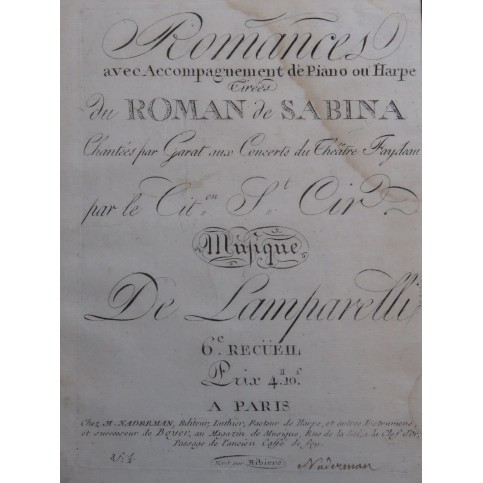 Romances
avec Accompagnement de Piano ou Harpe
Tirées
du ROMAN de SABINA
Chantées par Garat aux Concerts du Théâtre Faydeau
par le Cit.en S.t Cir.
Musique
De Lamparelli
6.e RECÜEIL
Prix 4.tt 10.s
A PARIS
Chez M. NADERMAN, Editeur, Luthier, Facteur de Harpe, et autres Instrumens,
et successeur de Boyer, au Magasin de Musique, Rue de la Loi, à la Clef d'Or,
Passage de l'ancien Caffé de Foy.
Ecrit par Ribiere
Naderman